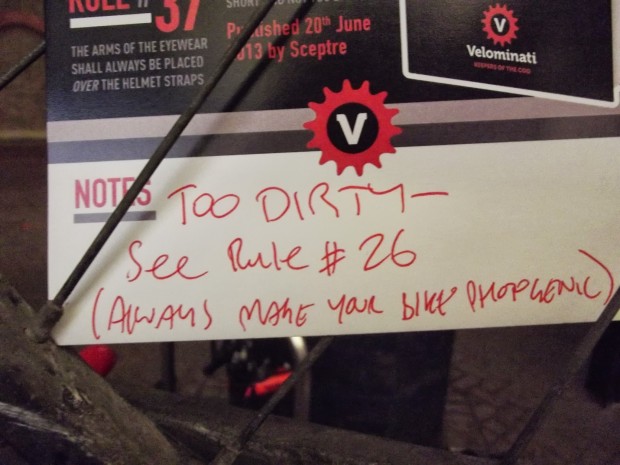 RULE # 37
THE ARMS OF THE EYEWEAR
SHALL ALWAYS BE PLACED
OVER THE HELMET STRAPS
SHORT
Published 20th June
2013 by Sceptre
Velominati
KEEPERS OF THE COG
V
NOTES
TOO DIRTY—
See Rule # 26
(ALWAYS MAKE YOUR BIKE PHOTOGENIC)